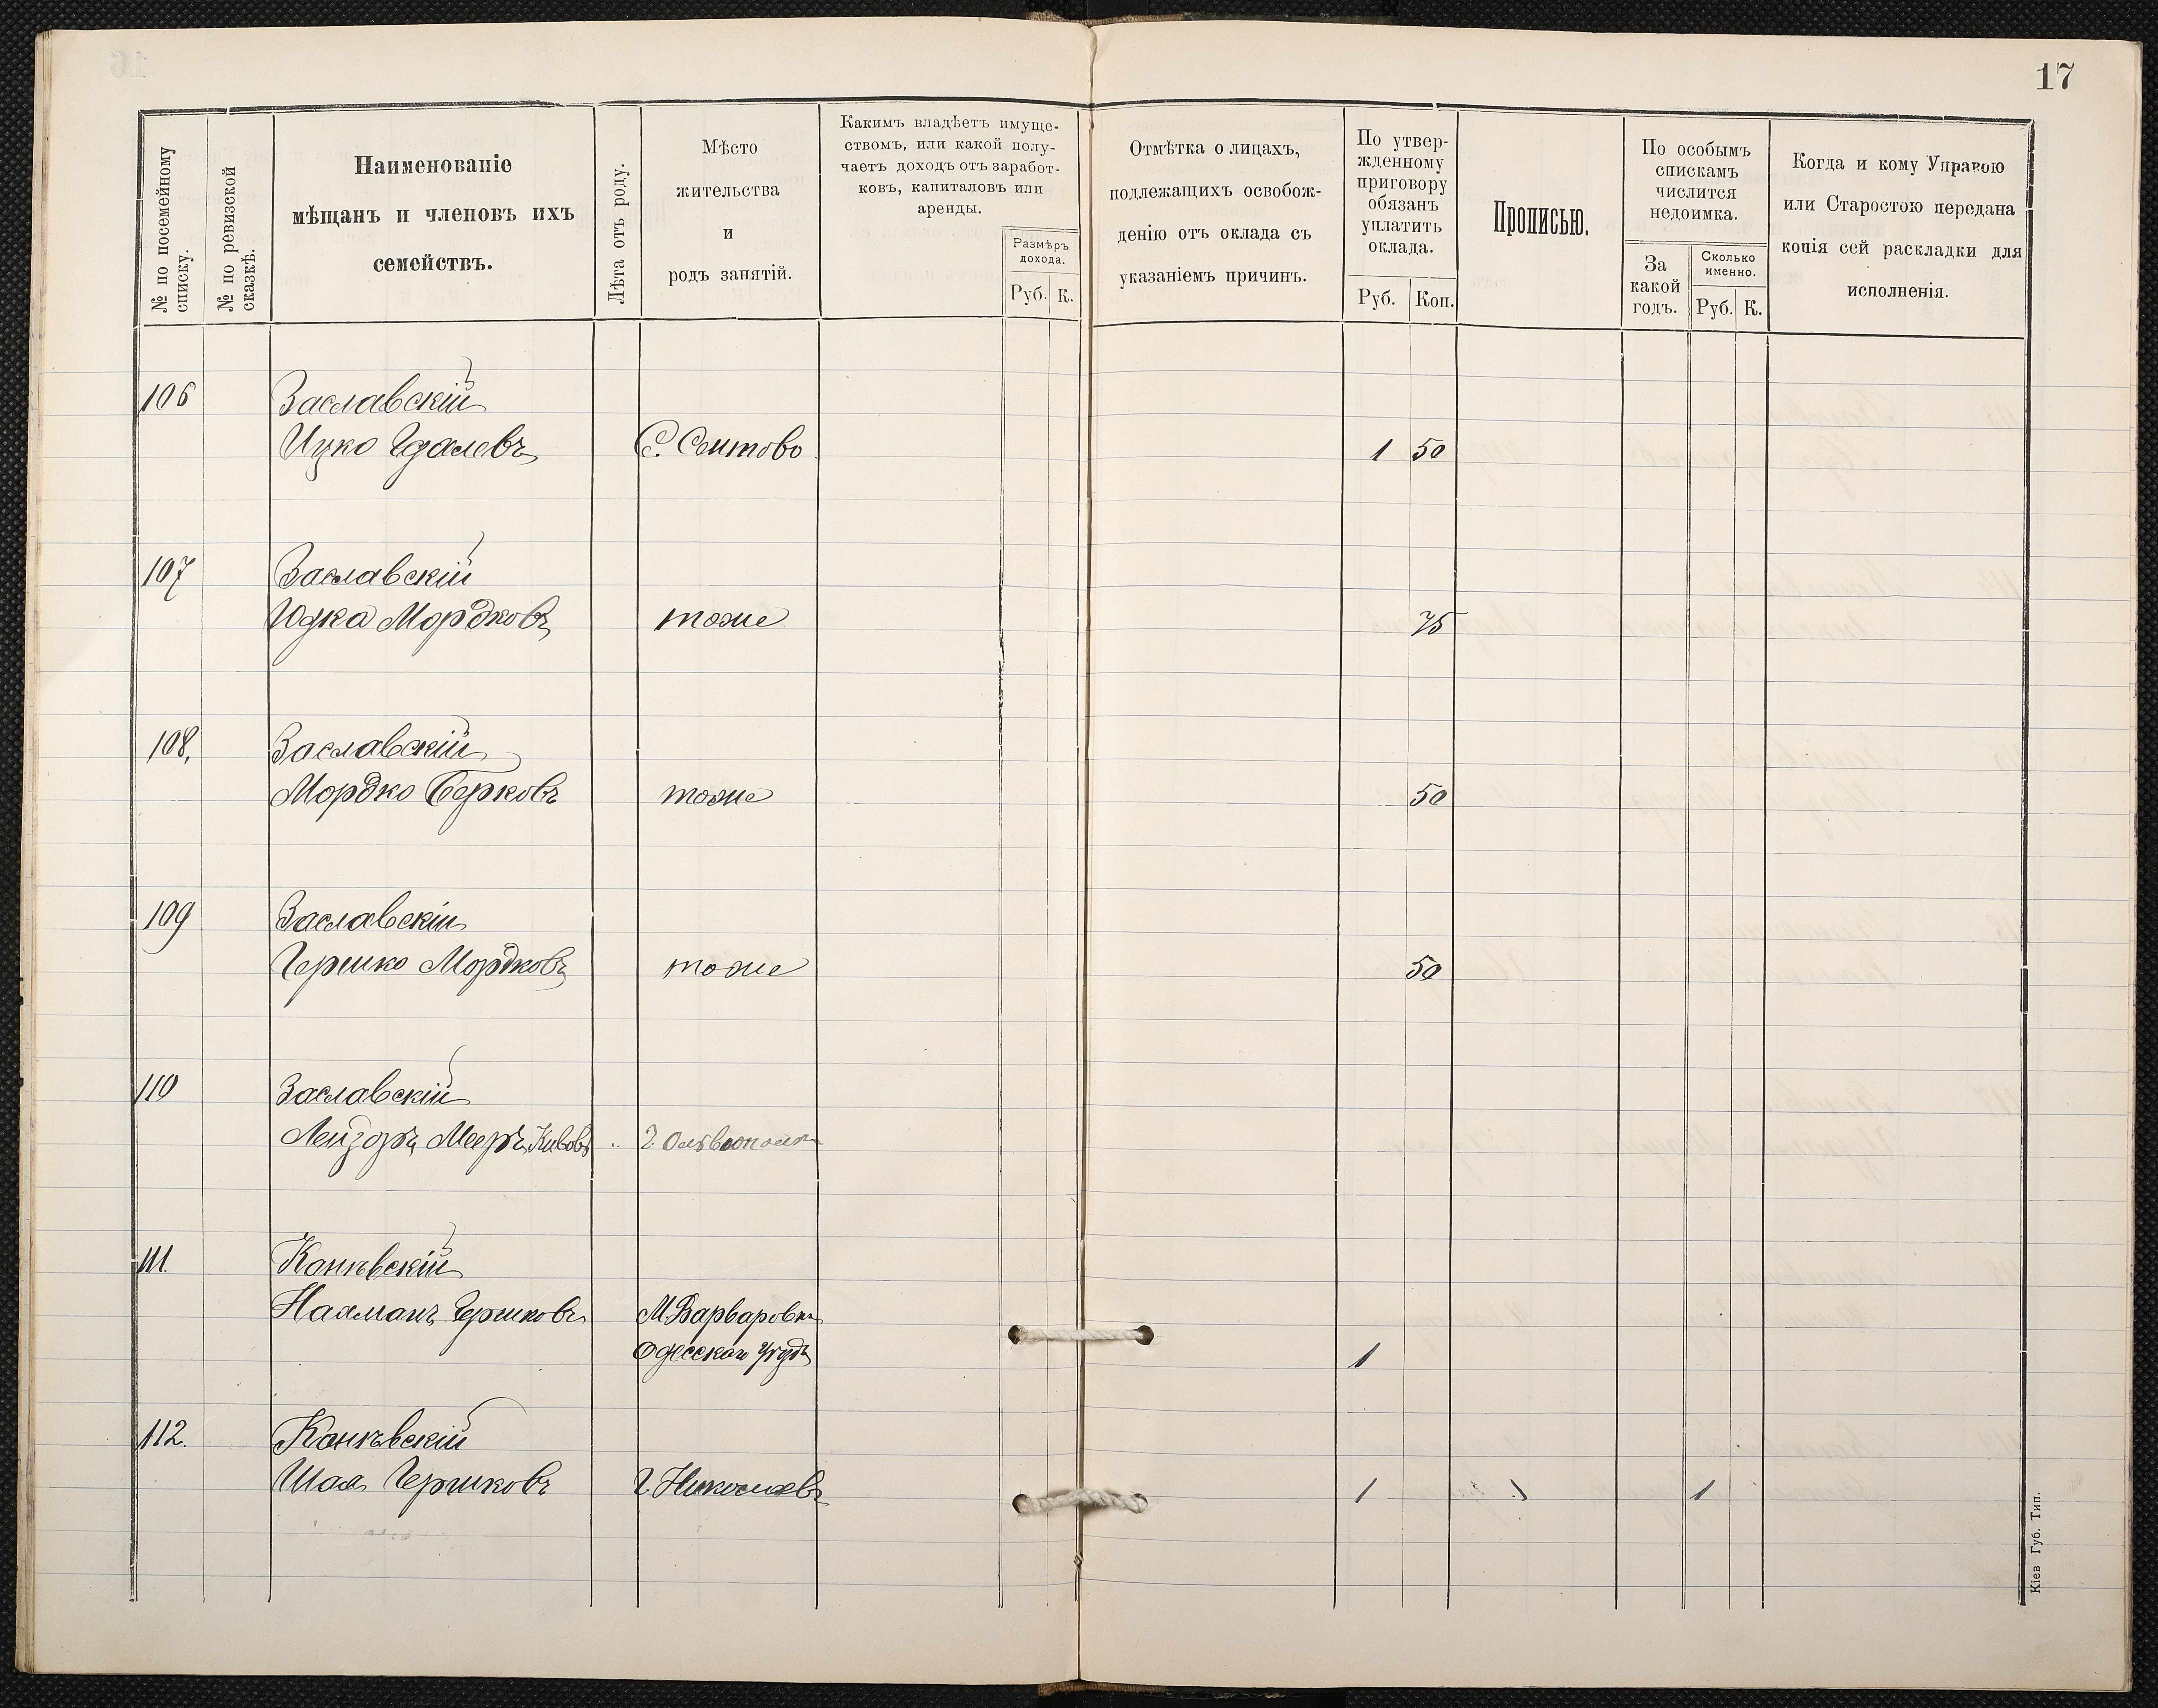 17
№ по посемейному списку.
№ по ревизской сказкѣ.
Наименованіе
мѣщанъ и членовъ ихъ
семействъ.
Лѣта отъ роду.
Мѣсто
жительства
и
родъ занятій.
Какимъ владѣетъ имуще-
ствомъ, или какой полу-
чаетъ доходъ отъ заработ-
ковъ, капиталовъ или
аренды.
Размѣръ
дохода.
Руб. К.
Отмѣтка о лицахъ,
подлежащихъ освобож-
денію отъ оклада съ
указаніемъ причинъ.
По утвер-
жденному
приговору
обязанъ
уплатить
оклада.
Руб. Коп.
Прописью.
По особымъ
спискамъ
числится
недоимка.
За
какой
годъ.
Сколько
именно.
Руб. К.
Когда и кому Управою
или Старостою передана
копія сей раскладки для
исполненія.
106 Заславскій
Ицко Гдалевъ С. Сентово 1 50
107 Заславскій
Юдка Мордковъ тоже 75
108, Заславскій
Мордко Берковъ тоже 50
109 Заславскій
Гершко Мордковъ тоже 50
110 Заславскій
Лейзоръ Мееръ Кивовъ Г. Ольвіополь
111. Каневскій
Нахманъ Гершковъ М. Варваровка
Одесскаго уѣзда 1
112. Каневскій
Шая Гершковъ Г. Николаевъ 1 1
Кіев Губ. Тип.